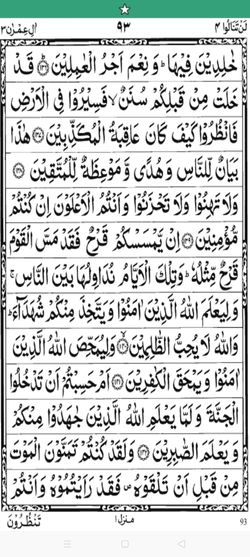 لَنْ تَنَالُوا ٤ ٩٣ اٰلِ عِمْرٰن ٣
خٰلِدِيْنَ فِيْهَا ؕ وَ نِعْمَ اَجْرُ الْعٰمِلِيْنَ ﴿۱۳۶﴾ قَدْ
خَلَتْ مِنْ قَبْلِكُمْ سُنَنٌ ۙ فَسِيْرُوْا فِي الْاَرْضِ
فَانْظُرُوْا كَيْفَ كَانَ عَاقِبَةُ الْمُكَذِّبِيْنَ ﴿۱۳۷﴾ هٰذَا
بَيَانٌ لِّلنَّاسِ وَ هُدًى وَّ مَوْعِظَةٌ لِّلْمُتَّقِيْنَ ﴿۱۳۸﴾
وَلَا تَهِنُوْا وَلَا تَحْزَنُوْا وَاَنْتُمُ الْاَعْلَوْنَ اِنْ كُنْتُمْ
مُّؤْمِنِيْنَ ﴿۱۳۹﴾ اِنْ يَّمْسَسْكُمْ قَرْحٌ فَقَدْ مَسَّ الْقَوْمَ
قَرْحٌ مِّثْلُهٗ ؕ وَتِلْكَ الْاَيَّامُ نُدَاوِلُهَا بَيْنَ النَّاسِ ۚ
وَ لِيَعْلَمَ اللّٰهُ الَّذِيْنَ اٰمَنُوْا وَيَتَّخِذَ مِنْكُمْ شُهَدَآءَ ؕ
وَاللّٰهُ لَا يُحِبُّ الظّٰلِمِيْنَ ﴿۱۴۰﴾ وَلِيُمَحِّصَ اللّٰهُ الَّذِيْنَ
اٰمَنُوْا وَيَمْحَقَ الْكٰفِرِيْنَ ﴿۱۴۱﴾ اَمْ حَسِبْتُمْ اَنْ تَدْخُلُوا
الْجَنَّةَ وَ لَمَّا يَعْلَمِ اللّٰهُ الَّذِيْنَ جٰهَدُوْا مِنْكُمْ
وَ يَعْلَمَ الصّٰبِرِيْنَ ﴿۱۴۲﴾ وَلَقَدْ كُنْتُمْ تَمَنَّوْنَ الْمَوْتَ
مِنْ قَبْلِ اَنْ تَلْقَوْهُ ۪ فَقَدْ رَاَيْتُمُوْهُ وَاَنْتُمْ
تَنْظُرُوْنَ منزل ١ 93